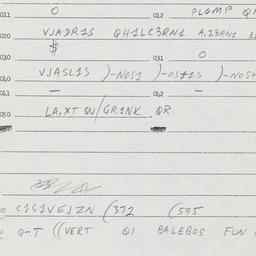 011 O 012 PLAMP
020 VJADR1S QH1LC3RN1 A,23RN1
030 $ 031 O
040 VJASL1S )-NOS1 )-OS+1S )-NOS+
041 — 042 —
050 LA,XT QU/GR1NK. QR
C1G1VEJZN (372 (595
Q-T ((VERT Q1 BALEBOS FUN